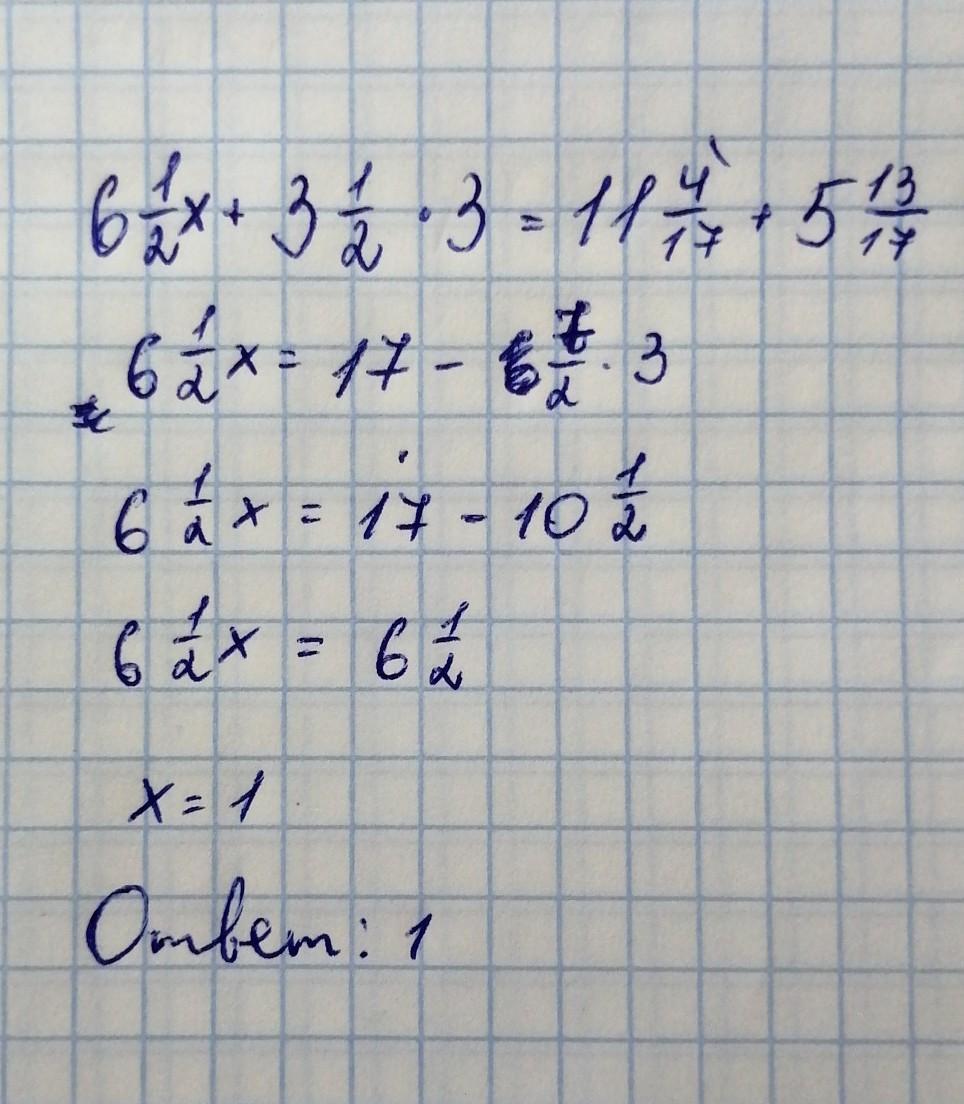 6 1/2 x + 3 1/2 · 3 = 11 4/17 + 5 13/17
6 1/2 x = 17 - 7/2 · 3
6 1/2 x = 17 - 10 1/2
6 1/2 x = 6 1/2
x = 1
Ответ: 1